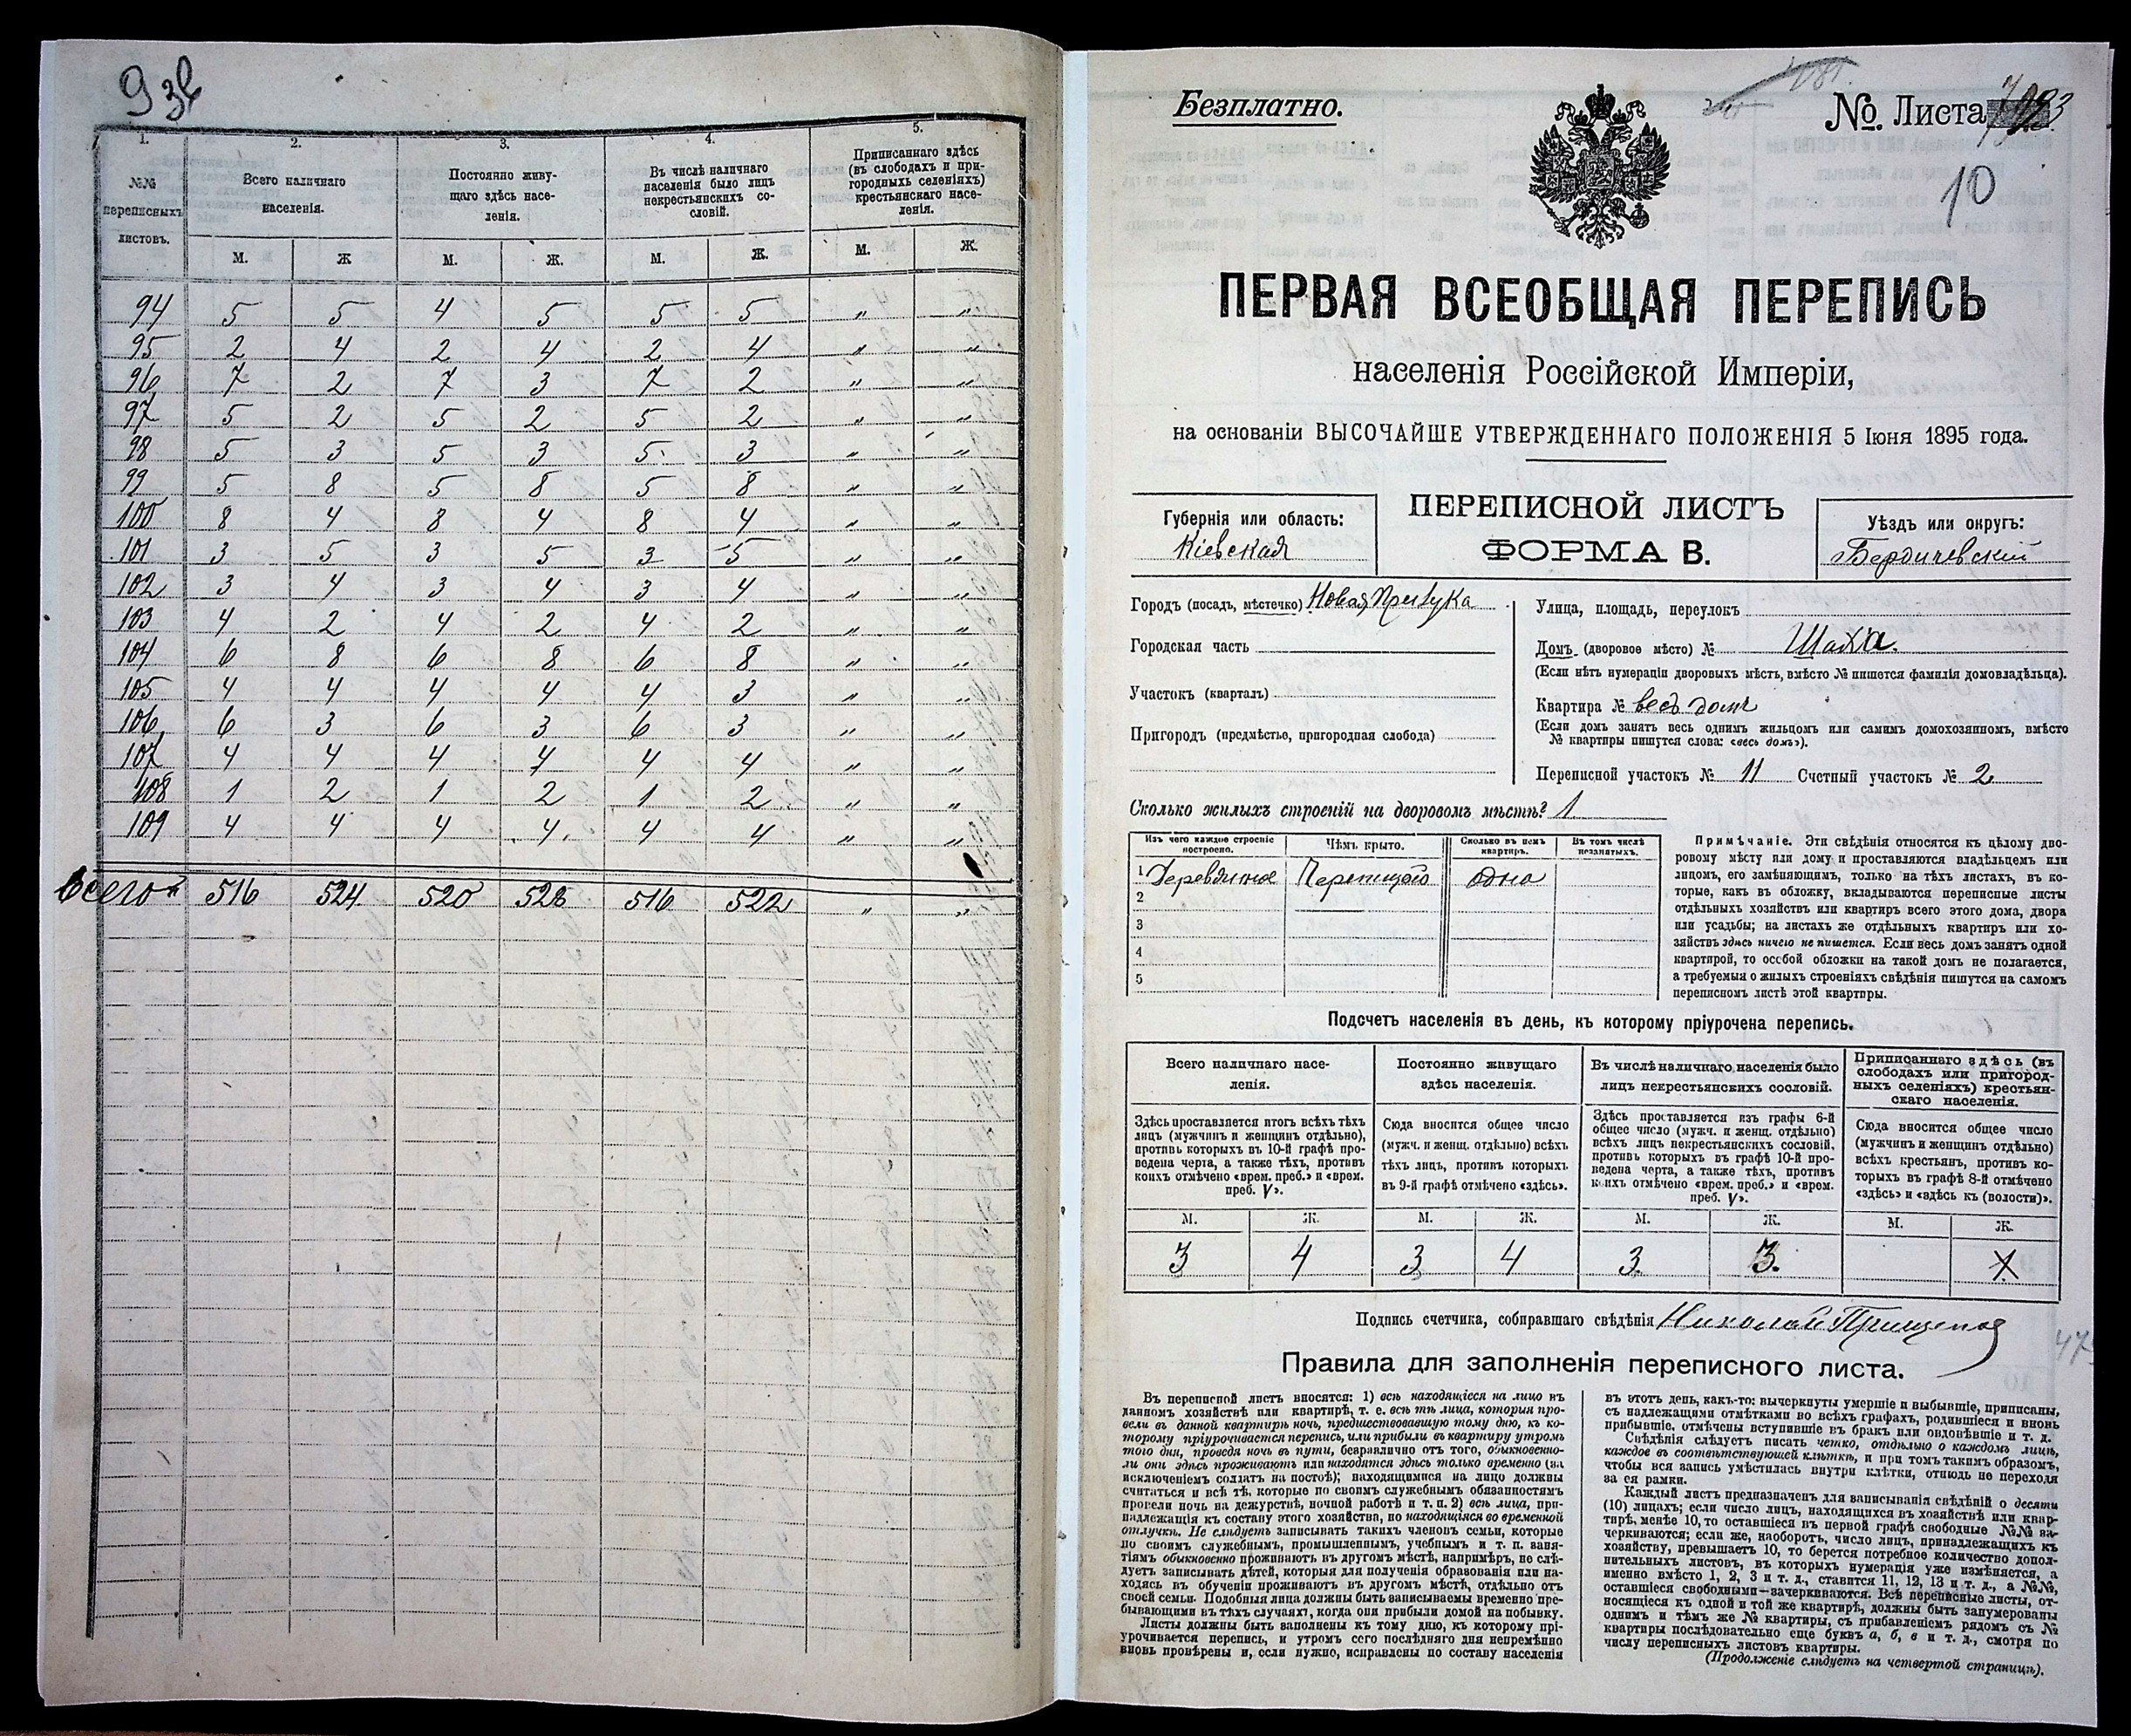 9 зв
1. 2. 3. 4. 5.
№№ переписныхъ листовъ.
Всего наличнаго населенія.
Постоянно живущаго здѣсь населенія.
Въ числѣ наличнаго населенія было лицъ некрестьянскихъ сословій.
Приписаннаго здѣсь (въ слободахъ и пригородныхъ селеніяхъ) крестьянскаго населенія.
М. Ж М. Ж. М. Ж. М. Ж.
94 5 5 4 5 5 5 " "
95 2 4 2 4 2 4 " "
96 7 2 7 3 7 2 " "
97 5 2 5 2 5 2 " "
98 5 3 5 3 5 3 " "
99 5 8 5 8 5 8 " "
100 8 4 8 4 8 4 " "
101 3 5 3 5 3 5 " "
102 3 4 3 4 3 4 " "
103 4 2 4 2 4 2 " "
104 6 8 6 8 6 8 " "
105 4 4 4 4 4 3 " "
106 6 3 6 3 6 3 " "
107 4 4 4 4 4 4 " "
108 1 2 1 2 1 2 " "
109 4 4 4 4 4 4 " "
Всего 516 524 520 528 516 522 " "
Безплатно.
№. Листа
10
ПЕРВАЯ ВСЕОБЩАЯ ПЕРЕПИСЬ
населенія Россійской Имперіи,
на основаніи ВЫСОЧАЙШЕ УТВЕРЖДЕННАГО ПОЛОЖЕНІЯ 5 Іюня 1895 года.
ПЕРЕПИСНОЙ ЛИСТЪ
ФОРМА В.
Губернія или область:
Кіевская
Уѣздъ или округъ:
Бердичевскій
Городъ (посадъ, мѣстечко) Новая Прилука
Городская часть
Участокъ (кварталъ)
Пригородъ (предмѣстье, пригородная слобода)
Улица, площадь, переулокъ
Домъ (дворовое мѣсто) №
(Если нѣтъ нумераціи дворовыхъ мѣстъ, вмѣсто № пишется фамилія домовладѣльца).
Квартира № весь домъ
(Если домъ занятъ весь однимъ жильцомъ или самимъ домохозяиномъ, вмѣсто
№ квартиры пишутся слова: «весь домъ»).
Переписной участокъ № 11 Счетный участокъ № 2
Сколько жилыхъ строеній на дворовомъ мѣстѣ? 1
Изъ чего каждое строеніе построено.
Чѣмъ крыто.
Сколько въ немъ квартиръ.
Въ томъ числѣ незанятыхъ.
1 Деревянное одна
2
3
4
5
Примѣчаніе. Эти свѣдѣнія относятся къ цѣлому дво-
ровому мѣсту или дому и проставляются владѣльцемъ или
лицомъ, его замѣняющимъ, только на тѣхъ листахъ, въ ко-
торые, какъ въ обложку, вкладываются переписные листы
отдѣльныхъ хозяйствъ или квартиръ всего этого дома, двора
или усадьбы; на листахъ же отдѣльныхъ квартиръ или хо-
зяйствъ здѣсь ничего не пишется. Если весь домъ занятъ одной
квартирой, то особой обложки на такой домъ не полагается,
а требуемыя о жилыхъ строеніяхъ свѣдѣнія пишутся на самомъ
переписномъ листѣ этой квартиры.
Подсчетъ населенія въ день, къ которому пріурочена перепись.
Всего наличнаго населенія.
Постоянно живущаго здѣсь населенія.
Въ числѣ наличнаго населенія было лицъ некрестьянскихъ сословій.
Приписаннаго здѣсь (въ слободахъ или пригородныхъ селеніяхъ) крестьянскаго населенія.
Здѣсь проставляется итогъ всѣхъ тѣхъ
лицъ (мужчинъ и женщинъ отдѣльно),
противъ которыхъ въ 10-й графѣ про-
ведена черта, а также тѣхъ, противъ
коихъ отмѣчено «врем. преб.» и «врем.
преб. V».
Сюда вносится общее число
(мужч. и женщ. отдѣльно) всѣхъ
тѣхъ лицъ, противъ которыхъ
въ 9-й графѣ отмѣчено «здѣсь».
Здѣсь проставляется изъ графы 6-й
общее число (мужч. и женщ. отдѣльно)
всѣхъ лицъ некрестьянскихъ сословій.
противъ которыхъ въ графѣ 10-й про-
ведена черта, а также тѣхъ, противъ
коихъ отмѣчено «врем. преб.» и «врем.
преб. V».
Сюда вносится общее число
(мужчинъ и женщинъ отдѣльно)
всѣхъ крестьянъ, противъ ко-
торыхъ въ графѣ 8-й отмѣчено
«здѣсь» и «здѣсь къ (волости)».
М. Ж. М. Ж. М. Ж. М. Ж.
3 4 3 4 3. 3.
Подпись счетчика, собиравшаго свѣдѣнія Николай
Правила для заполненія переписного листа.
Въ переписной листъ вносятся: 1) всѣ находящіеся на лицо въ
данномъ хозяйствѣ или квартирѣ, т. е. всѣ тѣ лица, которыя про-
вели въ данной квартирѣ ночь, предшествовавшую тому дню, къ ко-
торому пріурочивается перепись, или прибыли въ квартиру утромъ
того дня, проведя ночь въ пути, безразлично отъ того, обыкновенно-
ли они здѣсь проживаютъ или находятся здѣсь только временно (за
исключеніемъ солдатъ на постоѣ); находящимися на лицо должны
считаться и всѣ тѣ, которые по своимъ служебнымъ обязанностямъ
провели ночь на дежурствѣ, ночной работѣ и т. п. 2) всѣ лица, при-
надлежащія къ составу этого хозяйства, но находящіяся во временной
отлучкѣ. Не слѣдуетъ записывать такихъ членовъ семьи, которые
по своимъ служебнымъ, промышленнымъ, учебнымъ и т. п. заня-
тіямъ обыкновенно проживаютъ въ другомъ мѣстѣ, напримѣръ, не слѣ-
дуетъ записывать дѣтей, которыя для полученія образованія или на-
ходясь въ обученіи проживаютъ въ другомъ мѣстѣ, отдѣльно отъ
своей семьи. Подобныя лица должны быть записываемы временно пре-
бывающими въ тѣхъ случаяхъ, когда они прибыли домой на побывку.
Листы должны быть заполнены къ тому дню, къ которому прі-
урочивается перепись, и утромъ сего послѣдняго дня непремѣнно
вновь провѣрены и, если нужно, исправлены по составу населенія
въ этотъ день, какъ-то: вычеркнуты умершіе и выбывшіе, приписаны,
съ надлежащими отмѣтками во всѣхъ графахъ, родившіеся и вновь
прибывшіе, отмѣчены вступившіе въ бракъ или овдовѣвшіе и т. д.
Свѣдѣнія слѣдуетъ писать четко, отдѣльно о каждомъ лицѣ,
каждое въ соотвѣтствующей клѣткѣ, и при томъ такимъ образомъ,
чтобы вся запись умѣстилась внутри клѣтки, отнюдь не переходя
за ея рамки.
Каждый листъ предназначенъ для записыванія свѣдѣній о десяти
(10) лицахъ; если число лицъ, находящихся въ хозяйствѣ или квар-
тирѣ, менѣе 10, то оставшіеся въ первой графѣ свободные №№ за-
черкиваются; если же, наоборотъ, число лицъ, принадлежащихъ къ
хозяйству, превышаетъ 10, то берется потребное количество допол-
нительныхъ листовъ, въ которыхъ нумерація уже измѣняется, а
именно вмѣсто 1, 2, 3 и т. д., ставится 11, 12, 13 и т. д., а №№,
оставшіеся свободными—зачеркиваются. Всѣ переписные листы, от-
носящіеся къ одной и той же квартирѣ, должны быть занумерованы
однимъ и тѣмъ же № квартиры, съ прибавленіемъ рядомъ съ №
квартиры послѣдовательно еще буквъ а, б, в и т. д., смотря по
числу переписныхъ листовъ квартиры.
(Продолженіе слѣдуетъ на четвертой страницѣ).